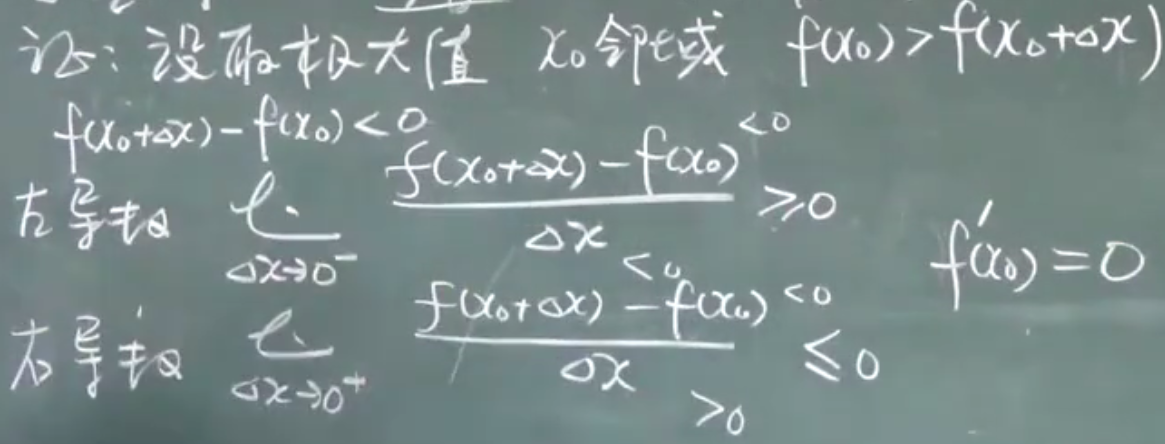 证: 设取极大值 x₀邻域 f(x₀)>f(x₀+Δx)
f(x₀+Δx)-f(x₀)<0
左导数 lim_{Δx→0⁻} (f(x₀+Δx)-f(x₀))^{<0} / Δx_{<0} ≥0
f'(x₀)=0
右导数 lim_{Δx→0⁺} (f(x₀+Δx)-f(x₀))^{<0} / Δx_{>0} ≤0